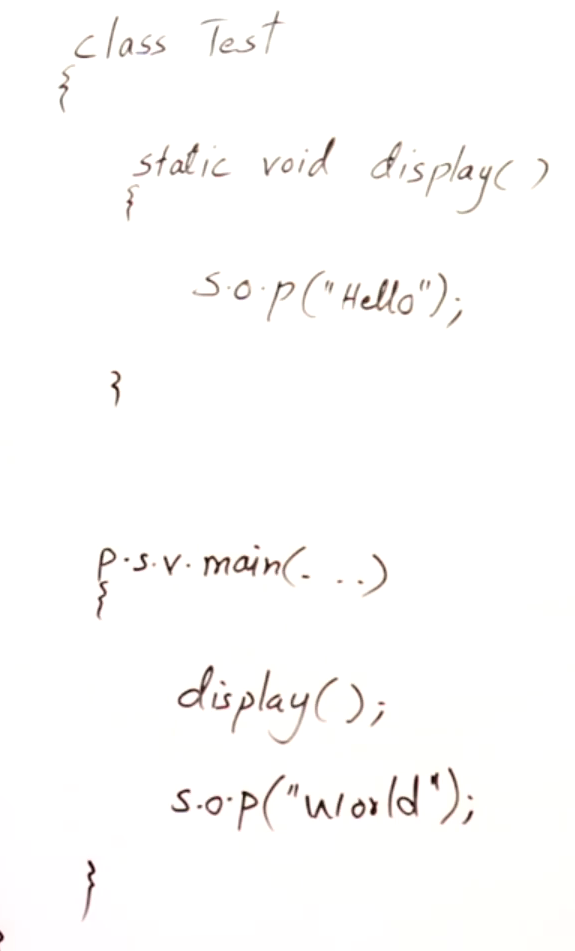 class Test
{
static void display()
{
S.o.p("Hello");
}
p.s.v.main(...)
{
display();
s.o.p("World");
}